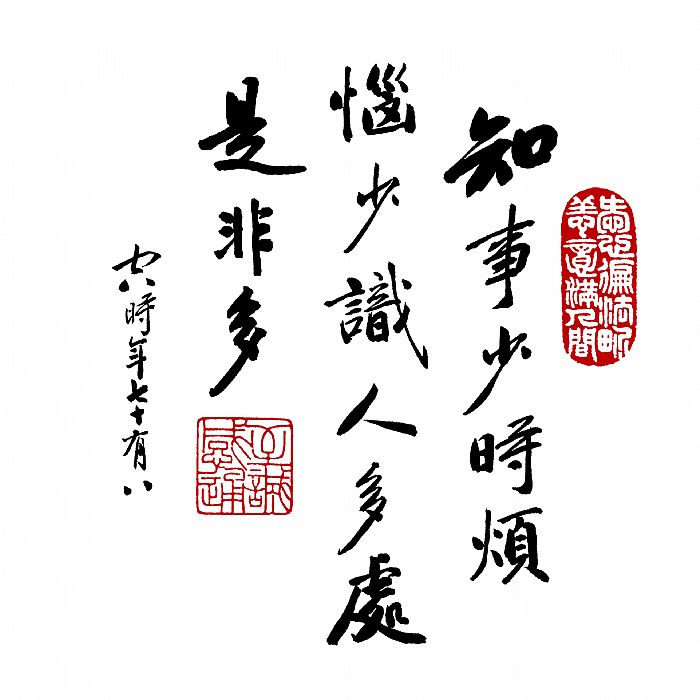 善意滿人間
知事少時煩
惱少識人多處
是非多
時年七十有八